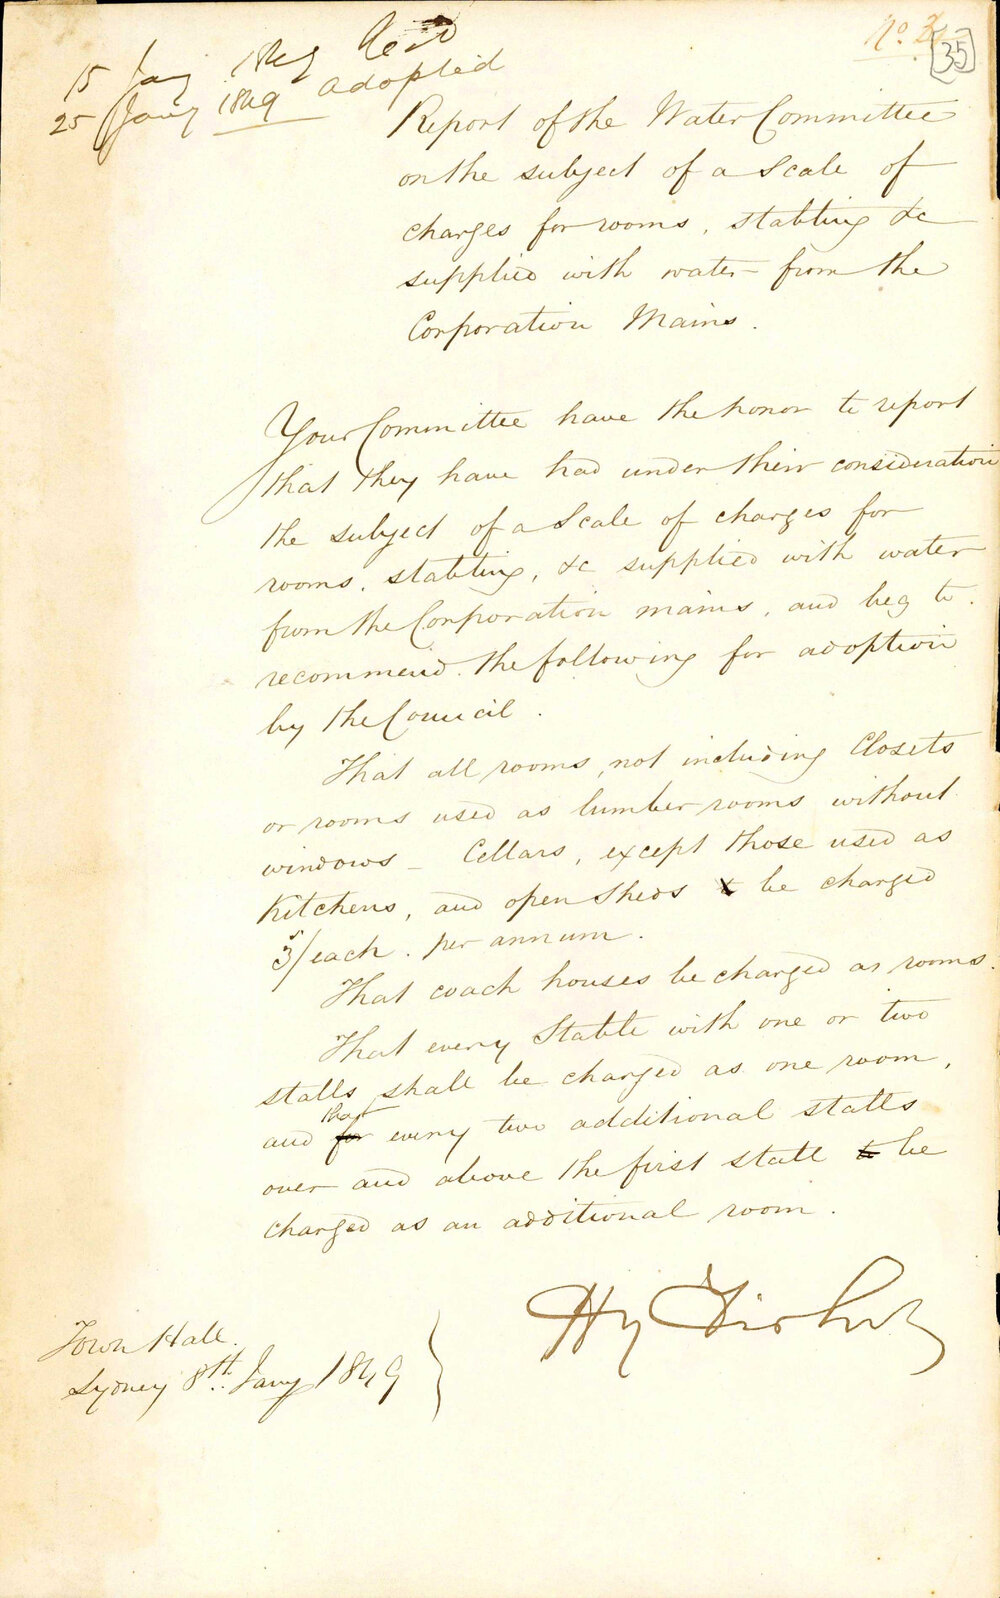 15 Jany 1849 Recd
25 Jany 1849 adopted
No. 3
35
Report of the Water Committee
on the subject of a Scale of
charges for rooms, stabling &c
supplied with water from the
Corporation Mains.
Your Committee have the honor to report
that they have had under their consideration
the subject of a Scale of charges for
rooms, stabling, &c supplied with water
from the Corporation mains, and beg to
recommend the following for adoption
by the Council.
That all rooms, not including Closets
or rooms used as lumber rooms without
windows - Cellars, except those used as
Kitchens, and open Sheds to be charged
5/ each per annum.
That coach houses be charged as rooms.
That every Stable with one or two
stalls shall be charged as one room,
and that for every two additional stalls
over and above the first stall to be
charged as an additional room.
Town Hall.
Sydney 8th Jany 1849
Hy